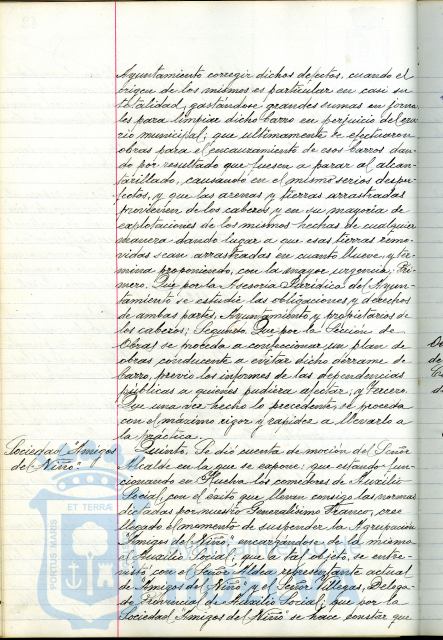 Ayuntamiento corregir dichos defectos, cuando el
origen de los mismos es particular en casi su
totalidad, gastándose grandes sumas en jorna
les para limpiar dicho barro en perjuicio del era
rio municipal; que ultimamente se efectuaron
obras para el encauzamiento de esos barros dan
do por resultado que fuesen a parar al alcan-
tarillado, causando en el mismo serios despe-
rfectos, y que las arenas y tierras arrastradas
provienen de los cabezos y en su mayoria de
explotaciones de los mismos hechas de cualquier
manera dando lugar a que esas tierras remo-
vidas sean arrastradas en cuanto llueve, y ter-
mina proponiendo, con la mayor urgencia; Pri-
mero. Que por la Asesoria Juridica del Ayun-
tamiento se estudie las obligaciones y derechos
de ambas partes, Ayuntamiento y propietarios de
los cabezos; Segundo. Que por la Sección de
Obras se proceda a confeccionar un plan de
obras conducente a evitar dicho derrame de
barro, previo los informes de las dependencias
públicas a quienes pudiera afectar; y Tercero.
Que una vez hecho lo precedente, se proceda
con el máximo rigor y rapidez a llevarlo a
la práctica.
Sociedad "Amigos
del Niño"
Quinto. Se dió cuenta de moción del Señor
Alcalde en la que se expone: que estando fun-
cionando en Huelva los comedores de Auxilio
Social, con el éxito que llevan consigo las normas
dictadas por nuestro Generalísimo Franco, cree
llegado el momento de suspender la Agrupación
"Amigos del Niño" encargándose de la misma
el Auxilio Social, que a tal objeto, se entre-
vistó con el Señor representante actual
de "Amigos del Niño" y el Señor Villegas, Delega-
do Provincial de Auxilio Social; que por la
Sociedad "Amigos del Niño" se hace constar que
PORTUS MARIS ET TERRAE